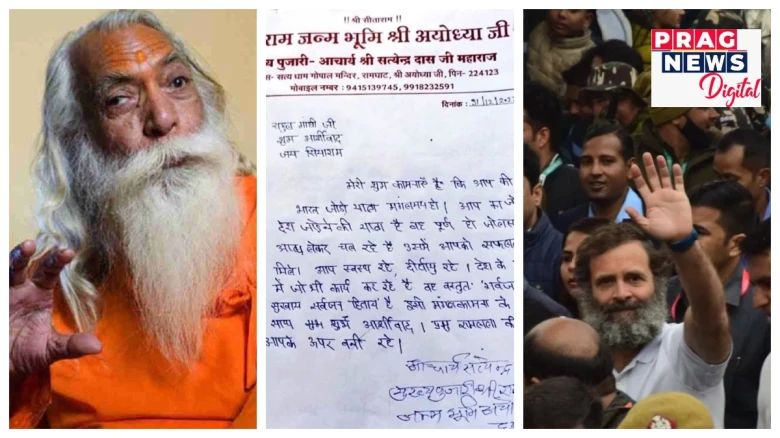 !! श्री सीताराम !!
राम जन्म भूमि श्री अयोध्या जी
य पुजारी- आचार्य श्री सत्येन्द्र दास जी महाराज
सत्य धाम गोपाल मन्दिर, रामघाट, श्री अयोध्या जी, पिन- 224123
मोबाइल नम्बर : 9415139745, 9918232591
दिनांक : 31/12/202
राहुल गांधी जी
शुभ आर्शीवाद
जय सियाराम
मेरी शुभ कामनाएँ है कि आप की
भारत जोड़ो यात्रा मंगलमय हो। आप का जो
देश जोड़ने की यात्रा है वह पूर्ण हो जो लक्ष
लेकर चल रहे है उसमें आपको सफल
मिले। आप स्वस्थ रहे, दीर्घायु रहे। देश के
में जो भी कार्य कर रहे है वह वस्तुतः सर्वज
सुखाय सर्वजन हिताय है इसी मंगलकामना के
साथ शुभ आर्शीवाद। प्रभु रामलला की
आपके ऊपर बनी रहे।
आचार्य सत्येन्द्र
मुख्य पुजारी श्री रा
जन्म भूमि अयो
PRAG
NEWS
Digital